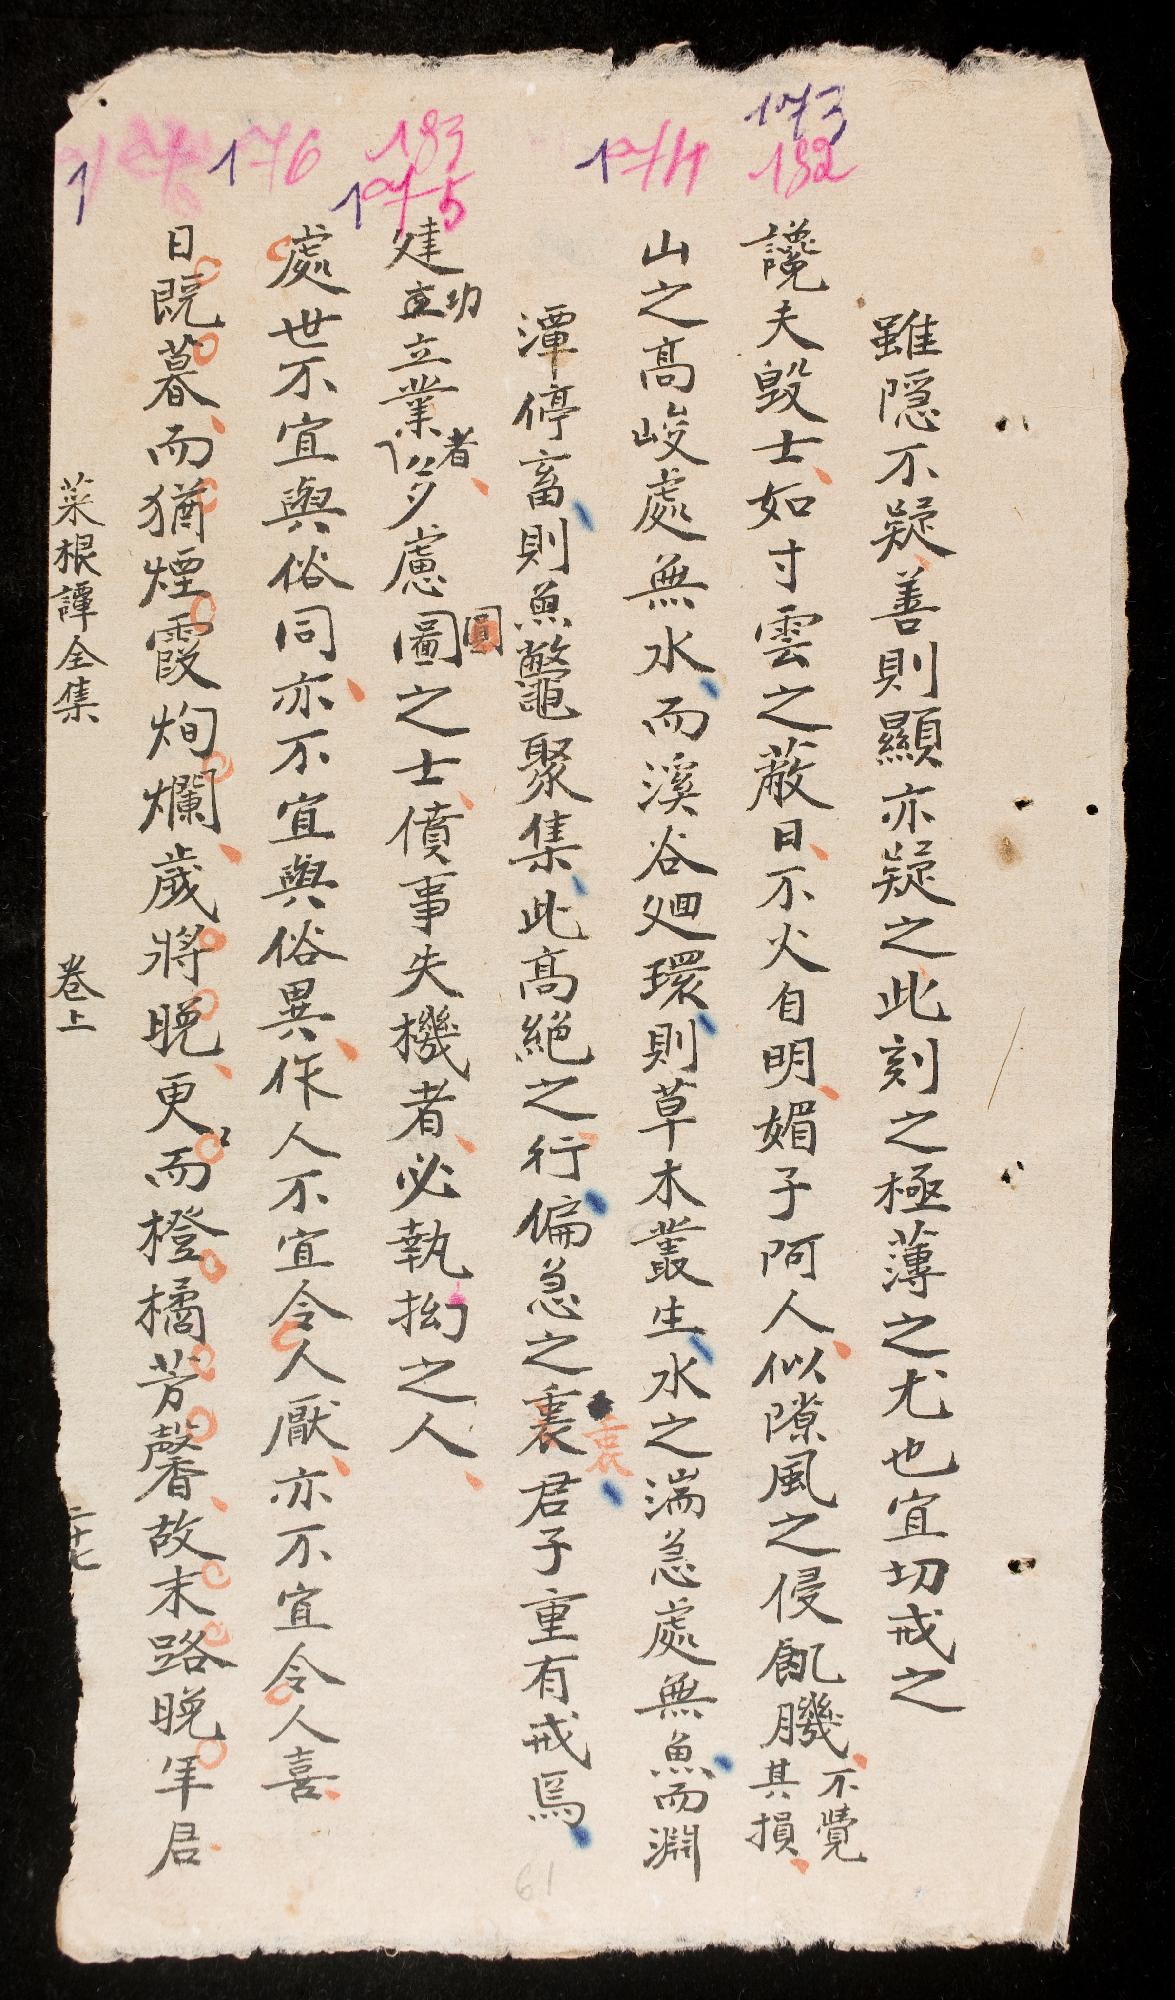 雖隱不疑善則顯亦疑之此刻之極薄之尤也宜切戒之
讒夫毀士如寸雲之蔽日不火自明媚子阿人似隙風之侵飢膌不覺其損
山之高峻處無水而溪谷廻環則草木叢生水之湍急處無魚而淵
潭停畜則魚鼈聚集此高絶之行偏急之衷君子重有戒焉
衷
建功立業者多慮圖之士僨事失機者必執拗之人
圓
處世不宜與俗同亦不宜與俗異作人不宜令人厭亦不宜令人喜
日既暮而猶煙霞炯爛歲將晚更而橙橘芳馨故末路晚年君
菜根譚全集 卷上 二十七
173
182
174
183
175
176
1
61